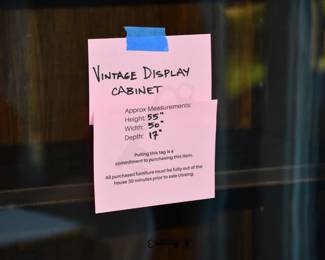 VINTAGE DISPLAY
CABINET
Approx Measurements:
Height: 55"
Width: 50"
Depth: 17"
Pulling this tag is a
commitment to purchasing this item.
All purchased furniture must be fully out of the
house 30 minutes prior to sale closing.